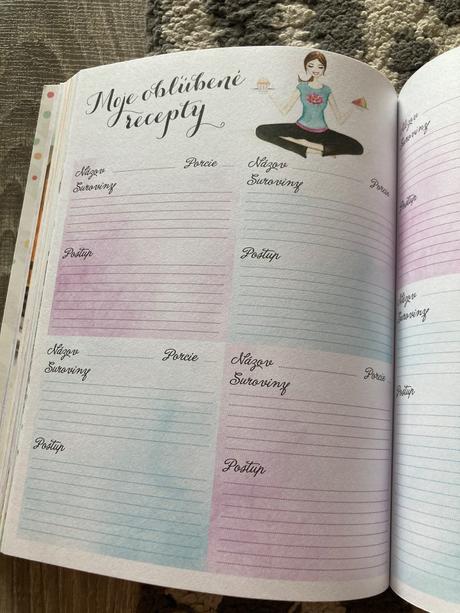 Moje obľúbené
recepty
Názov Porcie
Suroviny
Postup
Názov Porcie
Suroviny
Postup
Názov Porcie
Suroviny
Postup
Názov Porcie
Suroviny
Postup
Názov
Suroviny
Postup
Názov
Suroviny
Postup